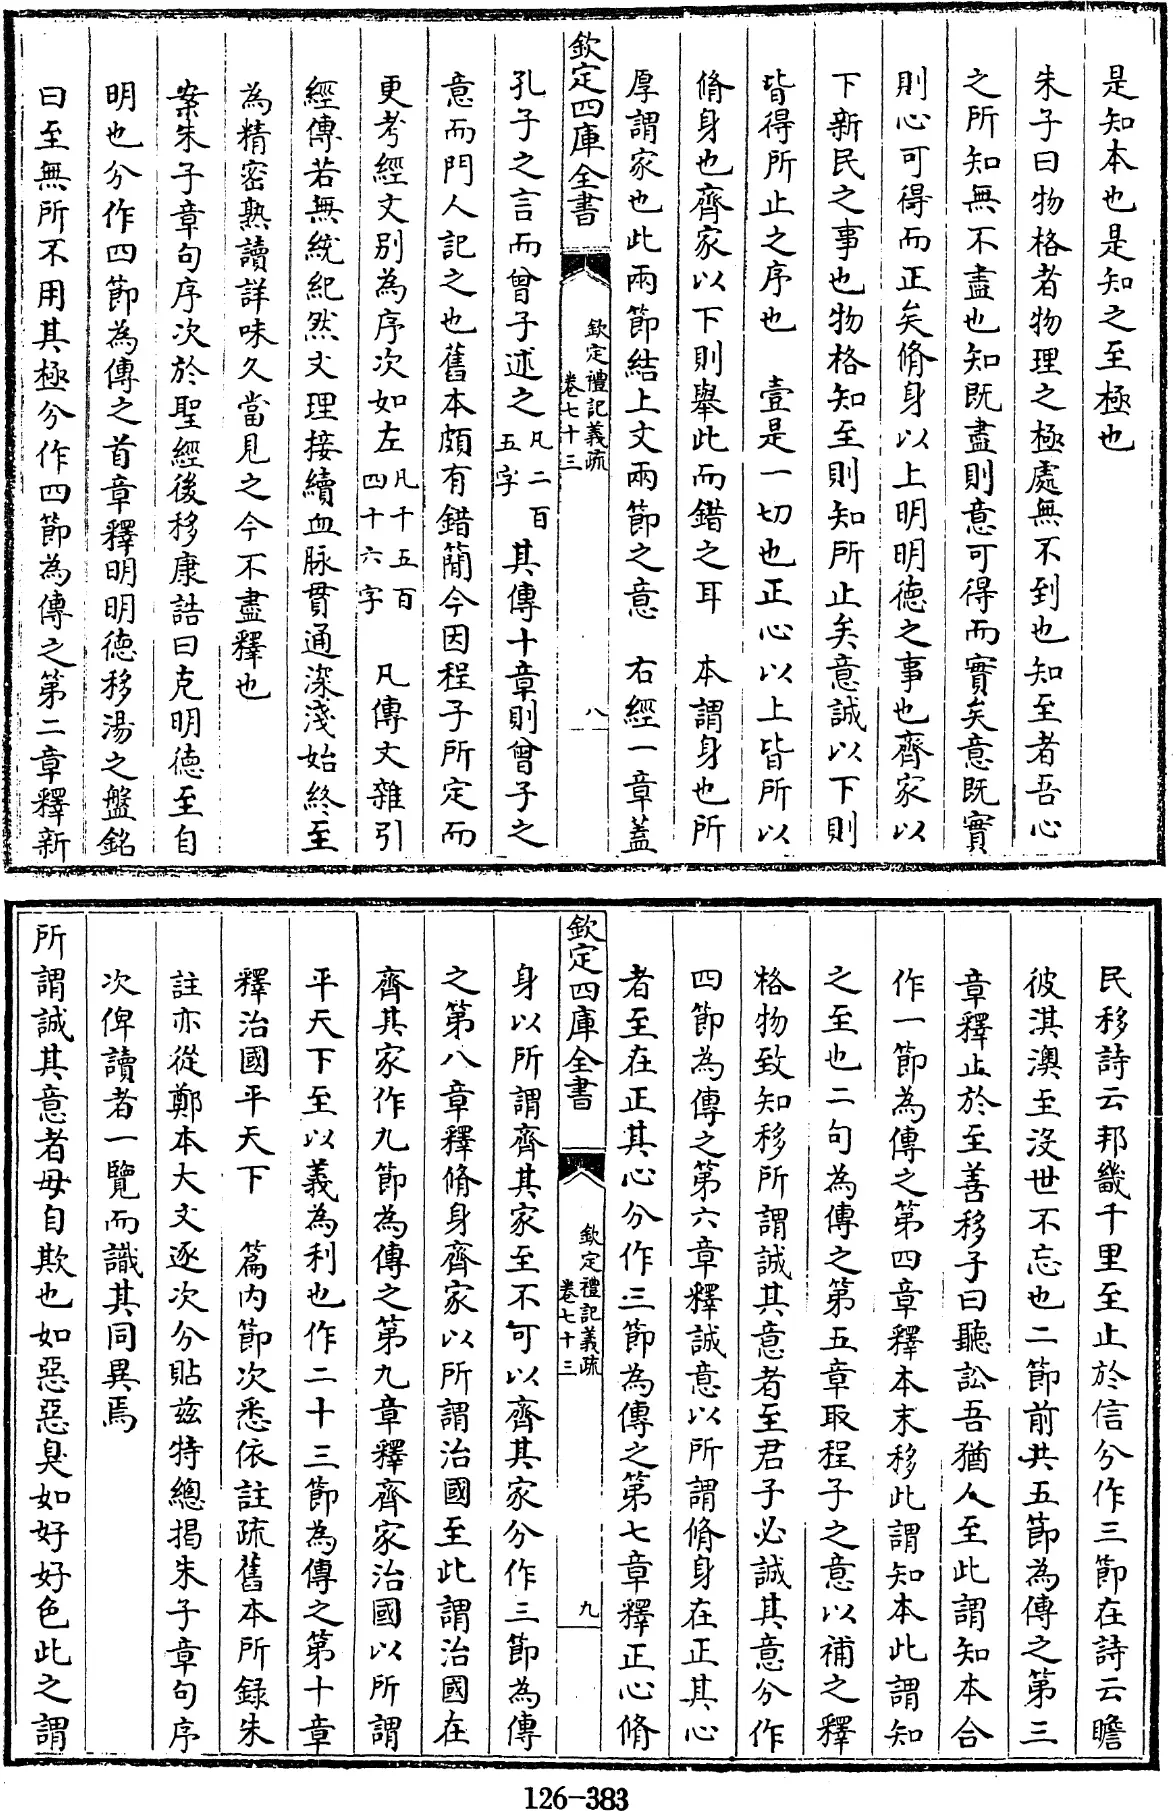 是知本也是知之至極也
朱子曰物格者物理之極處無不到也知至者吾心
之所知無不盡也知既盡則意可得而實矣意既實
則心可得而正矣脩身以上明明德之事也齊家以
下新民之事也物格知至則知所止矣意誠以下則
皆得所止之序也　壹是一切也正心以上皆所以
脩身也齊家以下則舉此而錯之耳　本謂身也所
厚謂家也此兩節結上文兩節之意　右經一章蓋
欽定四庫全書
欽定禮記義疏
卷七十三
八
孔子之言而曾子述之凡二百五字其傳十章則曾子之
意而門人記之也舊本頗有錯簡今因程子所定而
更考經文別為序次如左凡千五百四十六字　凡傳文雜引
經傳若無統紀然文理接續血脉貫通深淺始終至
為精密熟讀詳味久當見之今不盡釋也
案朱子章句序次於聖經後移康誥曰克明德至自
明也分作四節為傳之首章釋明明德移湯之盤銘
曰至無所不用其極分作四節為傳之第二章釋新
民移詩云邦畿千里至止於信分作三節在詩云瞻
彼淇澳至沒世不忘也二節前共五節為傳之第三
章釋止於至善移子曰聽訟吾猶人至此謂知本合
作一節為傳之第四章釋本末移此謂知本此謂知
之至也二句為傳之第五章取程子之意以補之釋
格物致知移所謂誠其意者至君子必誠其意分作
四節為傳之第六章釋誠意以所謂脩身在正其心
者至在正其心分作三節為傳之第七章釋正心脩
欽定四庫全書
欽定禮記義疏
卷七十三
九
身以所謂齊其家至不可以齊其家分作三節為傳
之第八章釋脩身齊家以所謂治國至此謂治國在
齊其家作九節為傳之第九章釋齊家治國以所謂
平天下至以義為利也作二十三節為傳之第十章
釋治國平天下　篇內節次悉依註疏舊本所錄朱
註亦從鄭本大文逐次分貼兹特總揭朱子章句序
次俾讀者一覽而識其同異焉
所謂誠其意者毋自欺也如惡惡臭如好好色此之謂
126-383